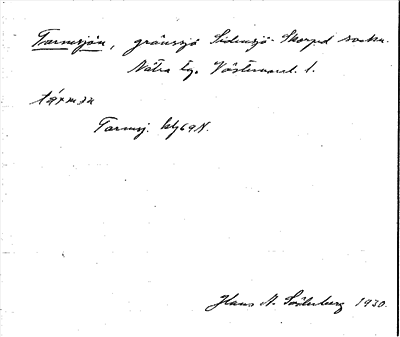 Tarmsjön, gränssjö Sidensjö - Skorped sockn.
Nätra tg. Västernorrl. l.
tármsn
Tarmsj. blj 69 N.
Hans N. Söderberg 1930.